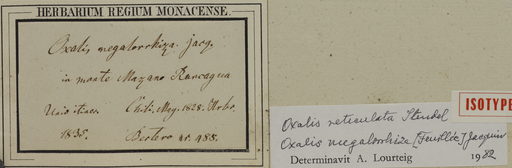 HERBARIUM REGIUM MONACENSE.
Oxalis megalorrhiza. jacq.
in monte Mazano Rancagua
Unio itiner. Chili. May. 1828. Hrbr.
1835. Bertero nr. 488.
ISOTYPE
Oxalis reticulata Steudel
Oxalis megalorrhiza [Feuillée] Jacquin
Determinavit A. Lourteig 1982